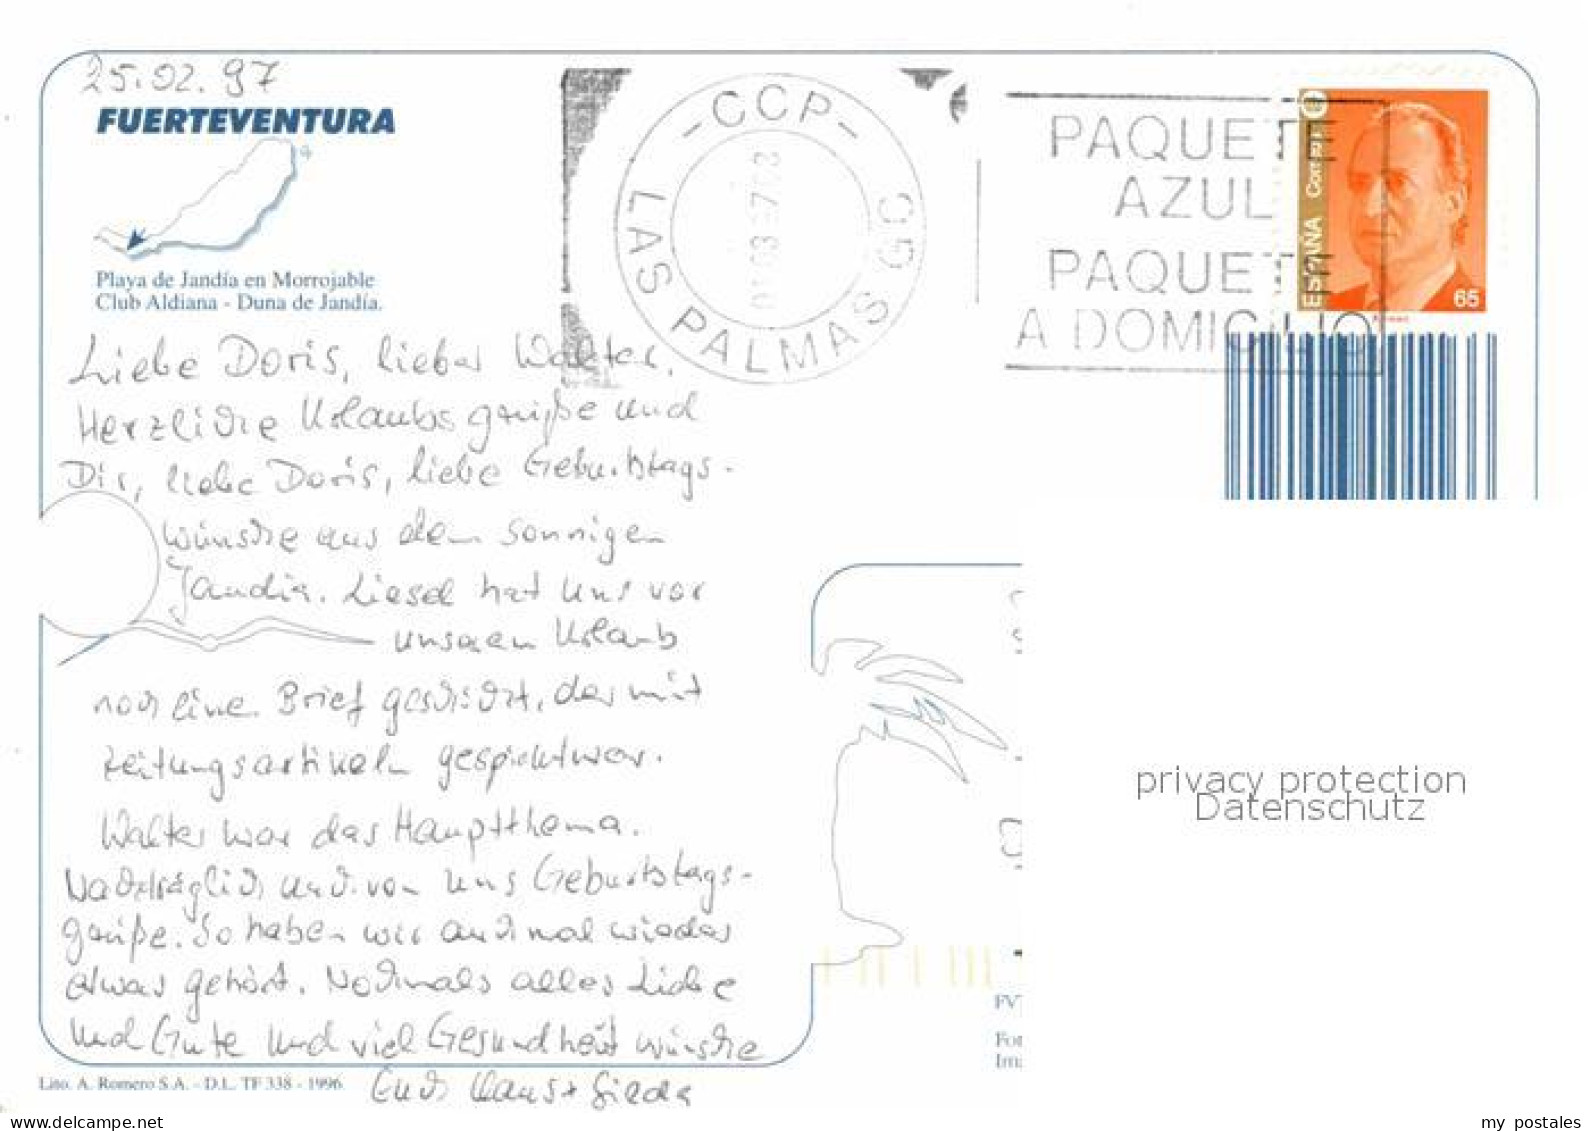 25.02.97
FUERTEVENTURA
Playa de Jandía en Morrojable
Club Aldiana - Duna de Jandía.
Liebe Doris, lieber Walter,
Herzliche Urlaubsgrüße und
Dir, liebe Doris, liebe Geburtstags-
wünsche aus dem sonnigen
Jandia. Liesel hat uns vor
unseren Urlaub
noch eine Brief geschickt, der mit
Zeitungsartikeln gespickt war.
Walter war das Hauptthema.
Nachträglich auch von uns Geburtstags-
grüße. So haben wir auch mal wieder
etwas gehört. Nochmals alles Liebe
und Gute und viel Gesundheit wünsche
Euch Klaus +
Lito. A. Romero S.A. - D.L. TF 338 - 1996
- CCP -
LAS PALMAS
PAQUETE
AZUL
PAQUETE
A DOMICILIO
ESPAÑA Correos
65
privacy protection
Datenschutz
FV
Fo
Im
www.delcampe.net
my postales